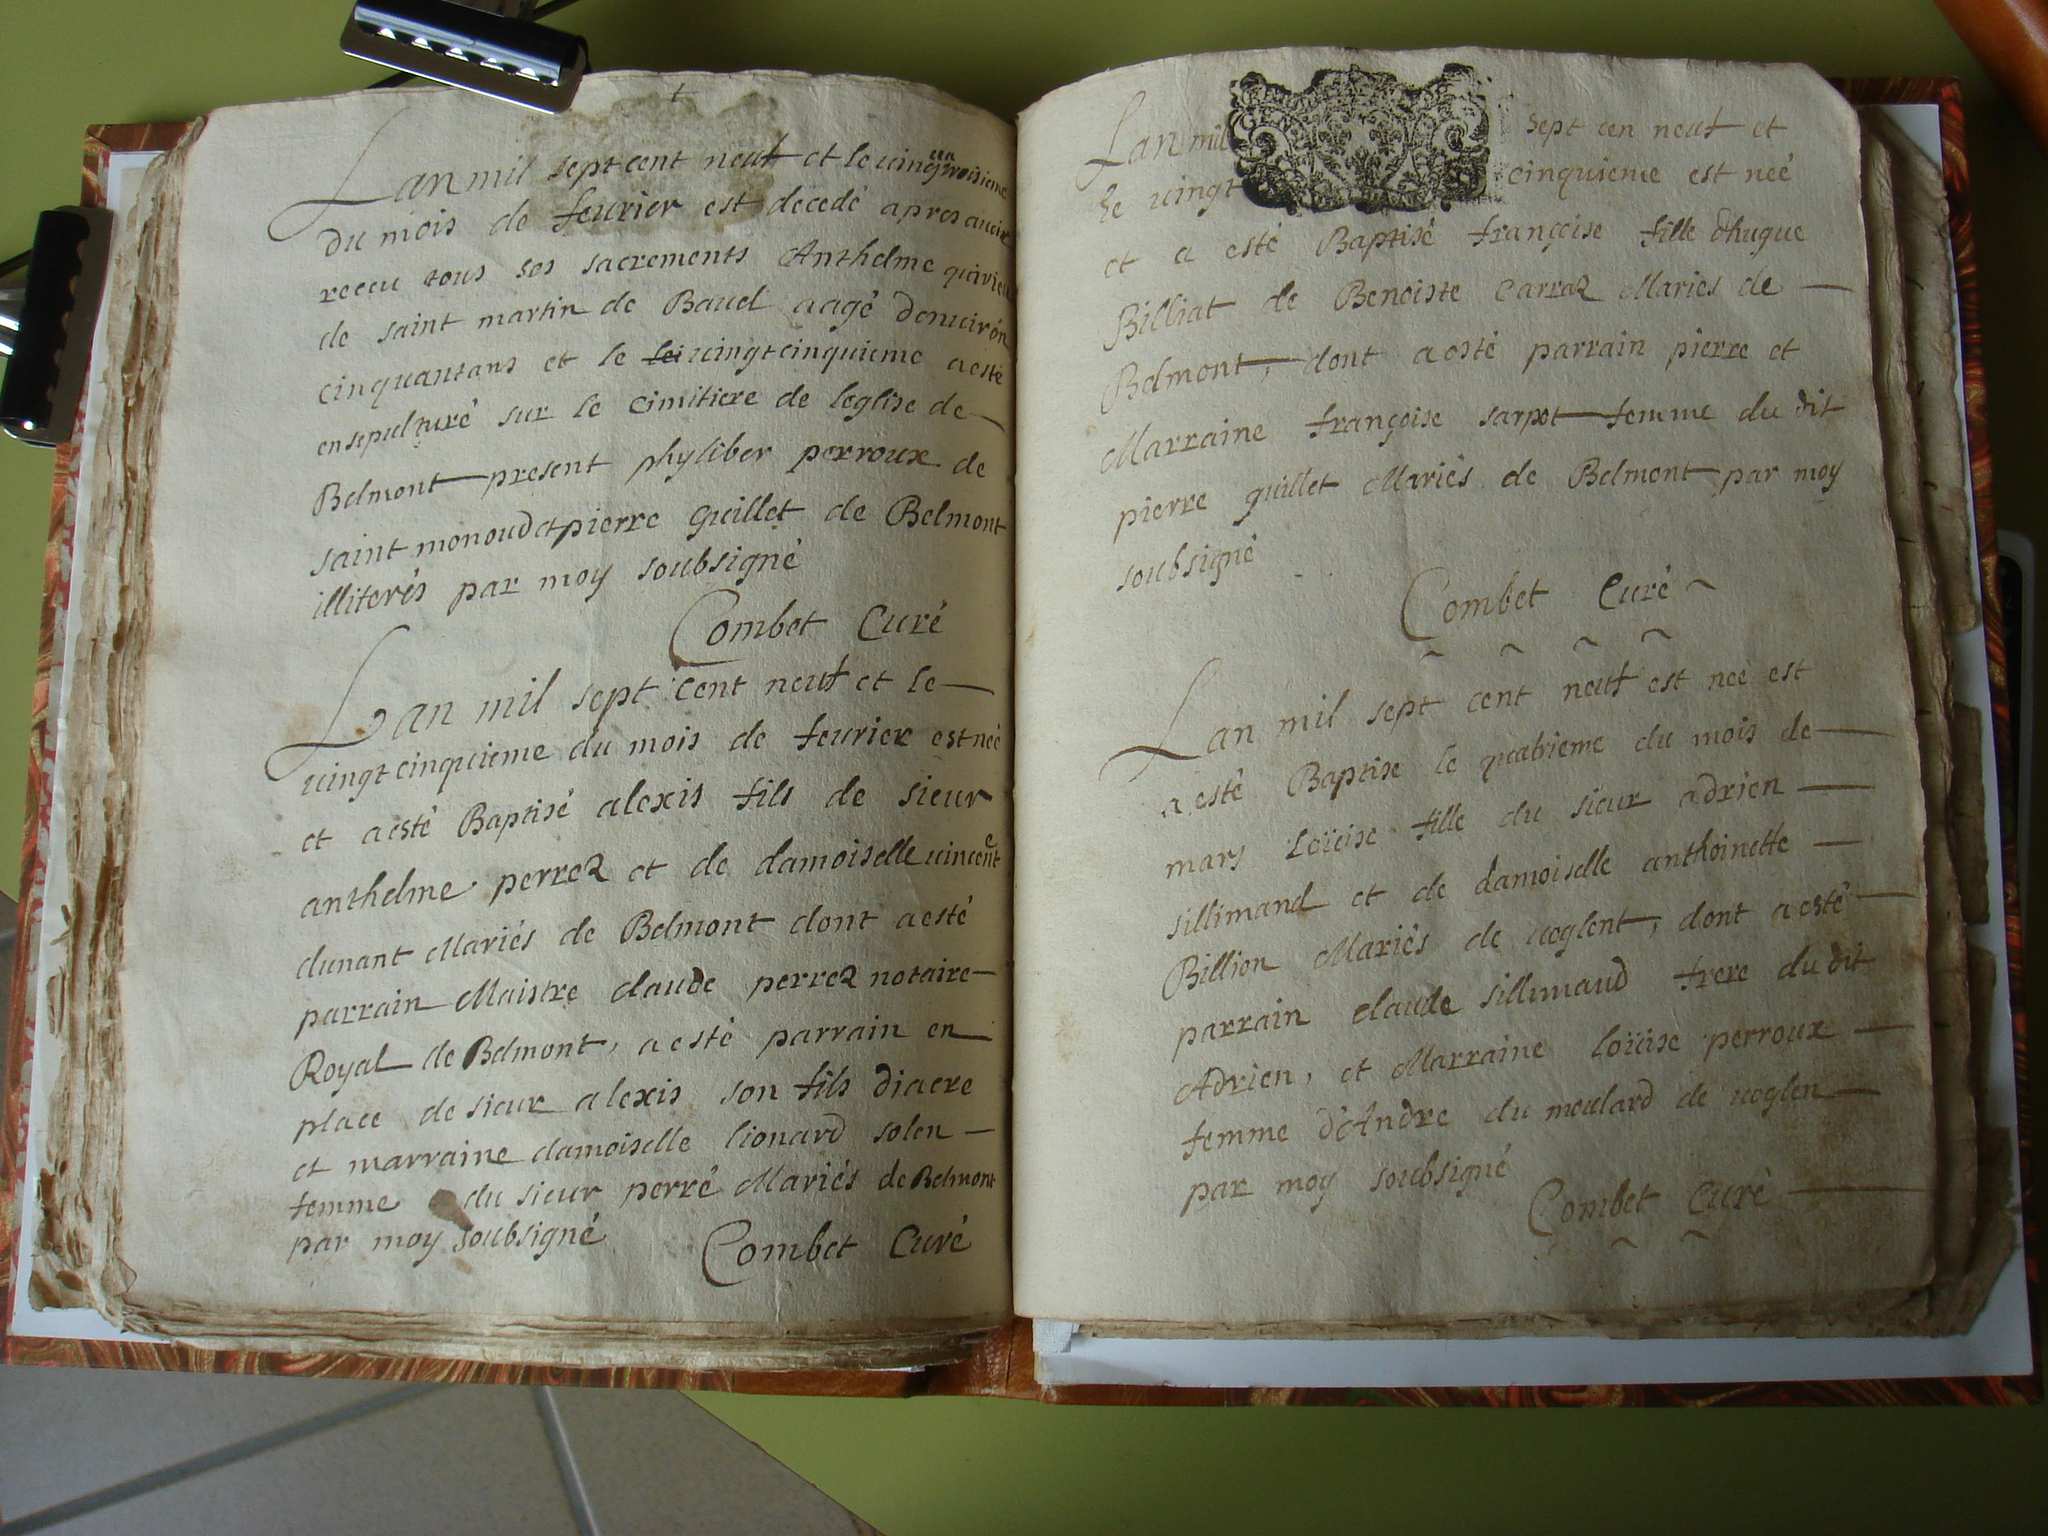 Lan mil sept cent neuf et le vingt troisieme
du mois de feurier est decedé apres auoir
receu tous ses sacrements Anthelme
de saint martin de Bauel aagé denuirón
cinquantans et le lei uingtcinquieme aesté
ensepulturé sur le cimitiere de leglise de
Belmont present phyliber perroux de
saint monoud et pierre guillet de Belmont
illiterés par moy soubsigné
Combet Curé
Lan mil sept cent neuf et le
uingt cinquieme du mois de feurier est neé
et aesté Baptisé alexis fils de sieur
anthelme perrez et de damoiselle uincente
dunant Mariés de Belmont dont aesté
parrain Maistre claude perrez notaire
Royal de Belmont, aesté parrain en
place de sieur alexis son fils diacre
et marraine damoiselle lionard solen
femme du sieur perré Mariés de Belmont
par moy soubsigné
Combet Curé
Lan mil sept cen neuf et
le uingt cinquieme est neé
et a esté Baptisé françoise fille dhugue
Billiat de Benoiste Carraz Mariés de
Belmont, dont aesté parrain pierre et
Marraine françoise sarpet femme du dit
pierre guillet Mariés de Belmont par moy
soubsigné
Combet Curé
Lan mil sept cent neuf est neé est
a esté Baptisé le quatrieme du mois de
mars Loüise fille du sieur adrien
sillimand et de damoiselle anthoinette
Billion Mariés de uoglent, dont aesté
parrain claude sillimaud frere du dit
Adrien, et Marraine loüise perroux
femme dAndre du moulard de uoglen
par moy soubsigné
Combet Curé